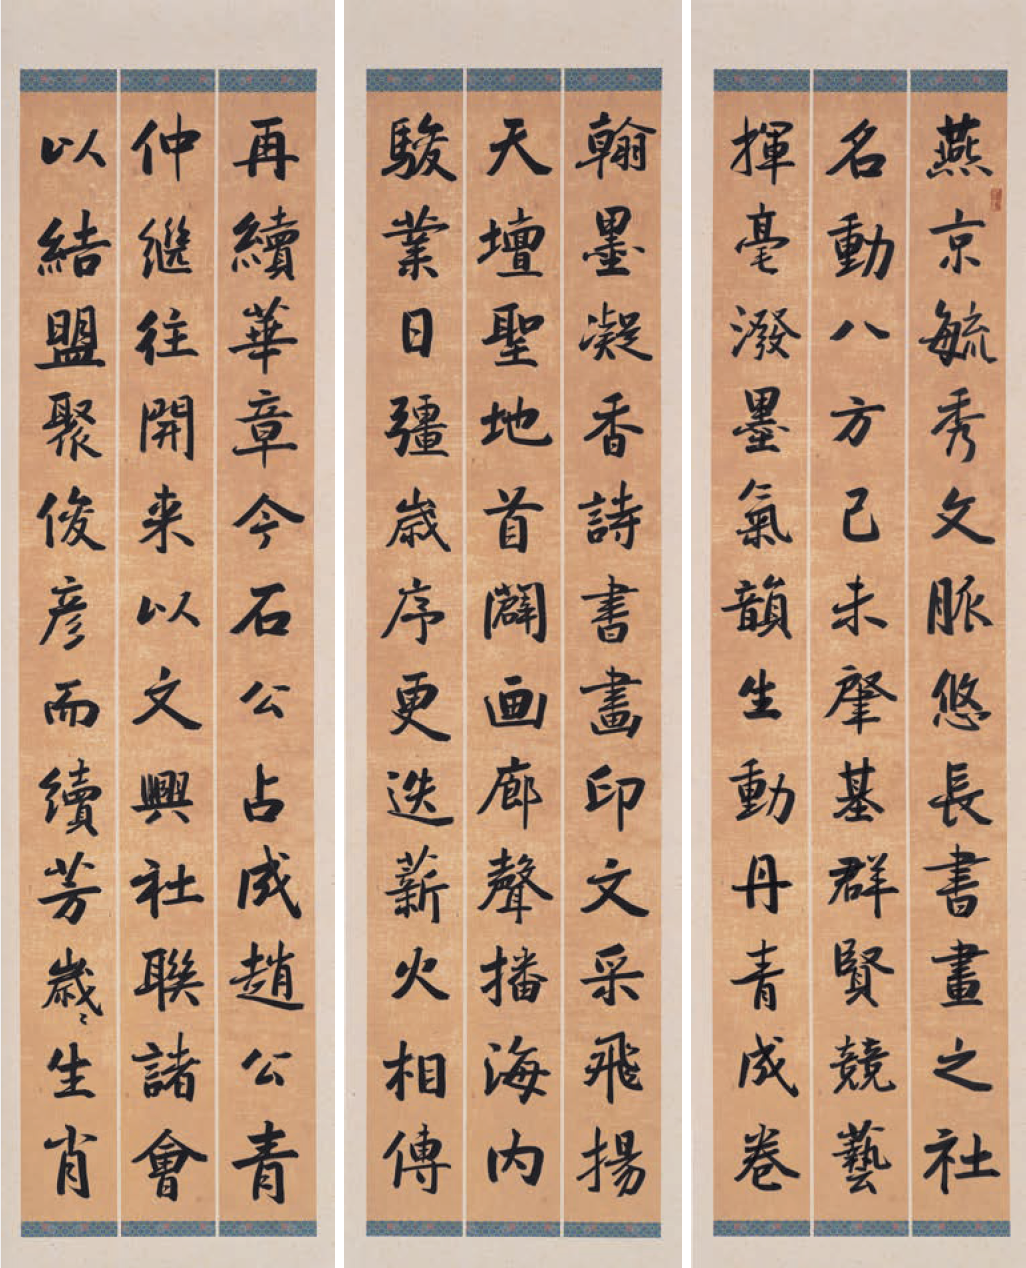 燕京毓秀文脈悠長書畫之社
名動八方己未肇基群賢競藝
揮毫潑墨氣韻生動丹青成卷
翰墨凝香詩書畫印文采飛揚
天壇聖地首闢画廊聲播海内
駿業日彊歲序更迭薪火相傳
再續華章今石公占成趙公青
仲継往開来以文興社聯諸會
以結盟聚俊彦而續芳歲〻生肖